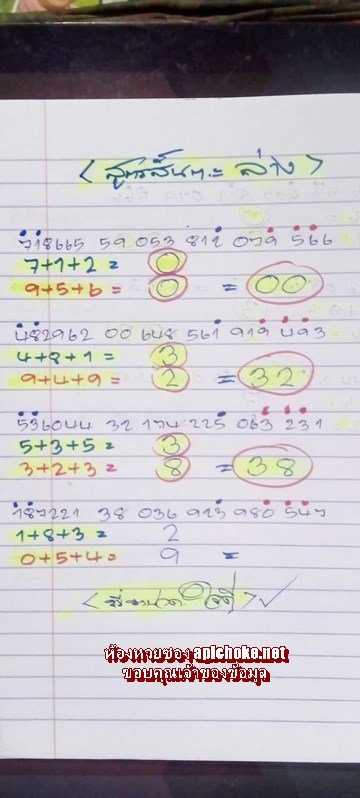 < สูตรลั้นทะ ล่าง >
718665 59 053 812 079 566
7+1+2 = 0
9+5+6 = 0 = 00
482962 00 648 561 919 493
4+8+1 = 3
9+4+9 = 2 = 32
536044 32 174 225 063 231
5+3+5 = 3
3+2+3 = 8 = 38
187221 38 036 913 980 547
1+8+3 = 2
0+5+4 = 9 =
ห้องหวยซอง apichoke.net
ขอบคุณเจ้าของข้อมูล